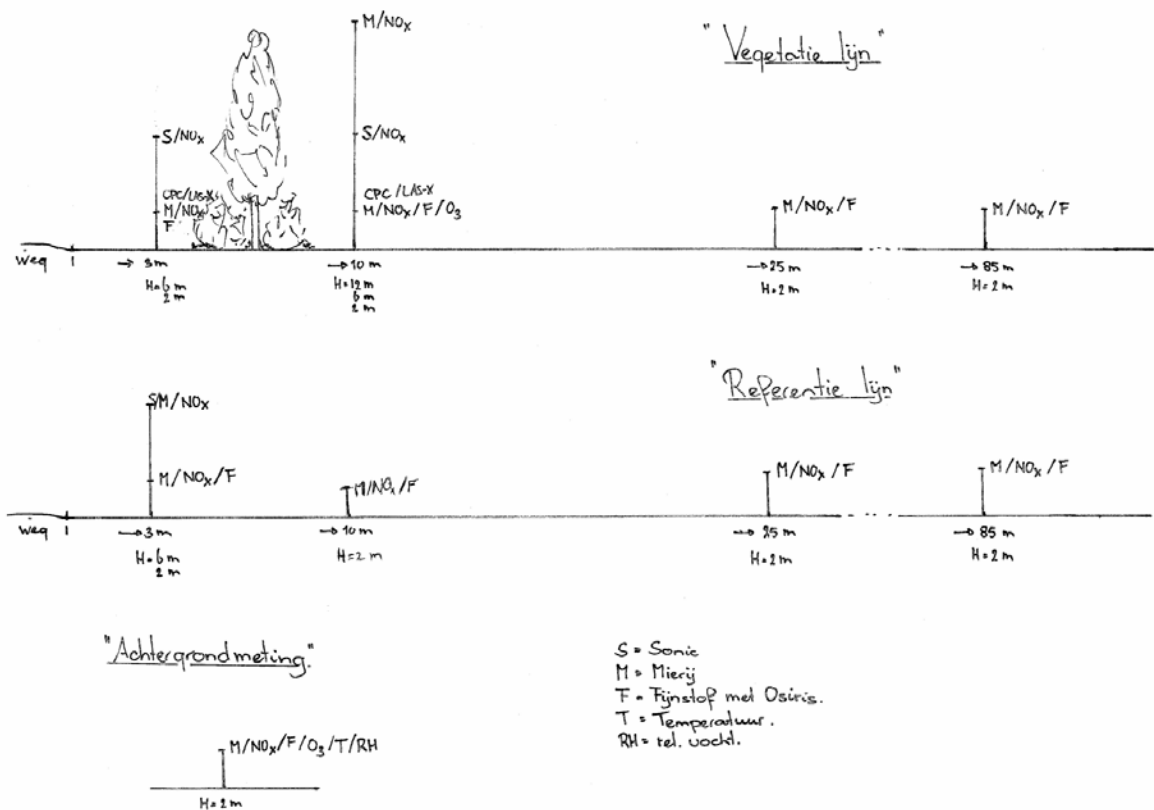 "Vegetatie lijn"
M/NOx
S/NOx
S/NOx
CPC/LAS-X
M/NOx
F
CPC/LAS-X
M/NOx/F/O3
M/NOx/F
M/NOx/F
weg
→ 3m
H=6m
2m
→ 10m
H=12m
6m
2m
→ 25m
H=2m
→ 85m
H=2m
"Referentie lijn"
S/M/NOx
M/NOx/F
M/NOx/F
M/NOx/F
M/NOx/F
weg
→ 3m
H=6m
2m
→ 10m
H=2m
→ 25m
H=2m
→ 85m
H=2m
"Achtergrondmeting"
M/NOx/F/O3/T/RH
H=2m
S = Sonic
M = Mierij
F = Fijnstof met Osiris.
T = Temperatuur.
RH = rel. vocht.